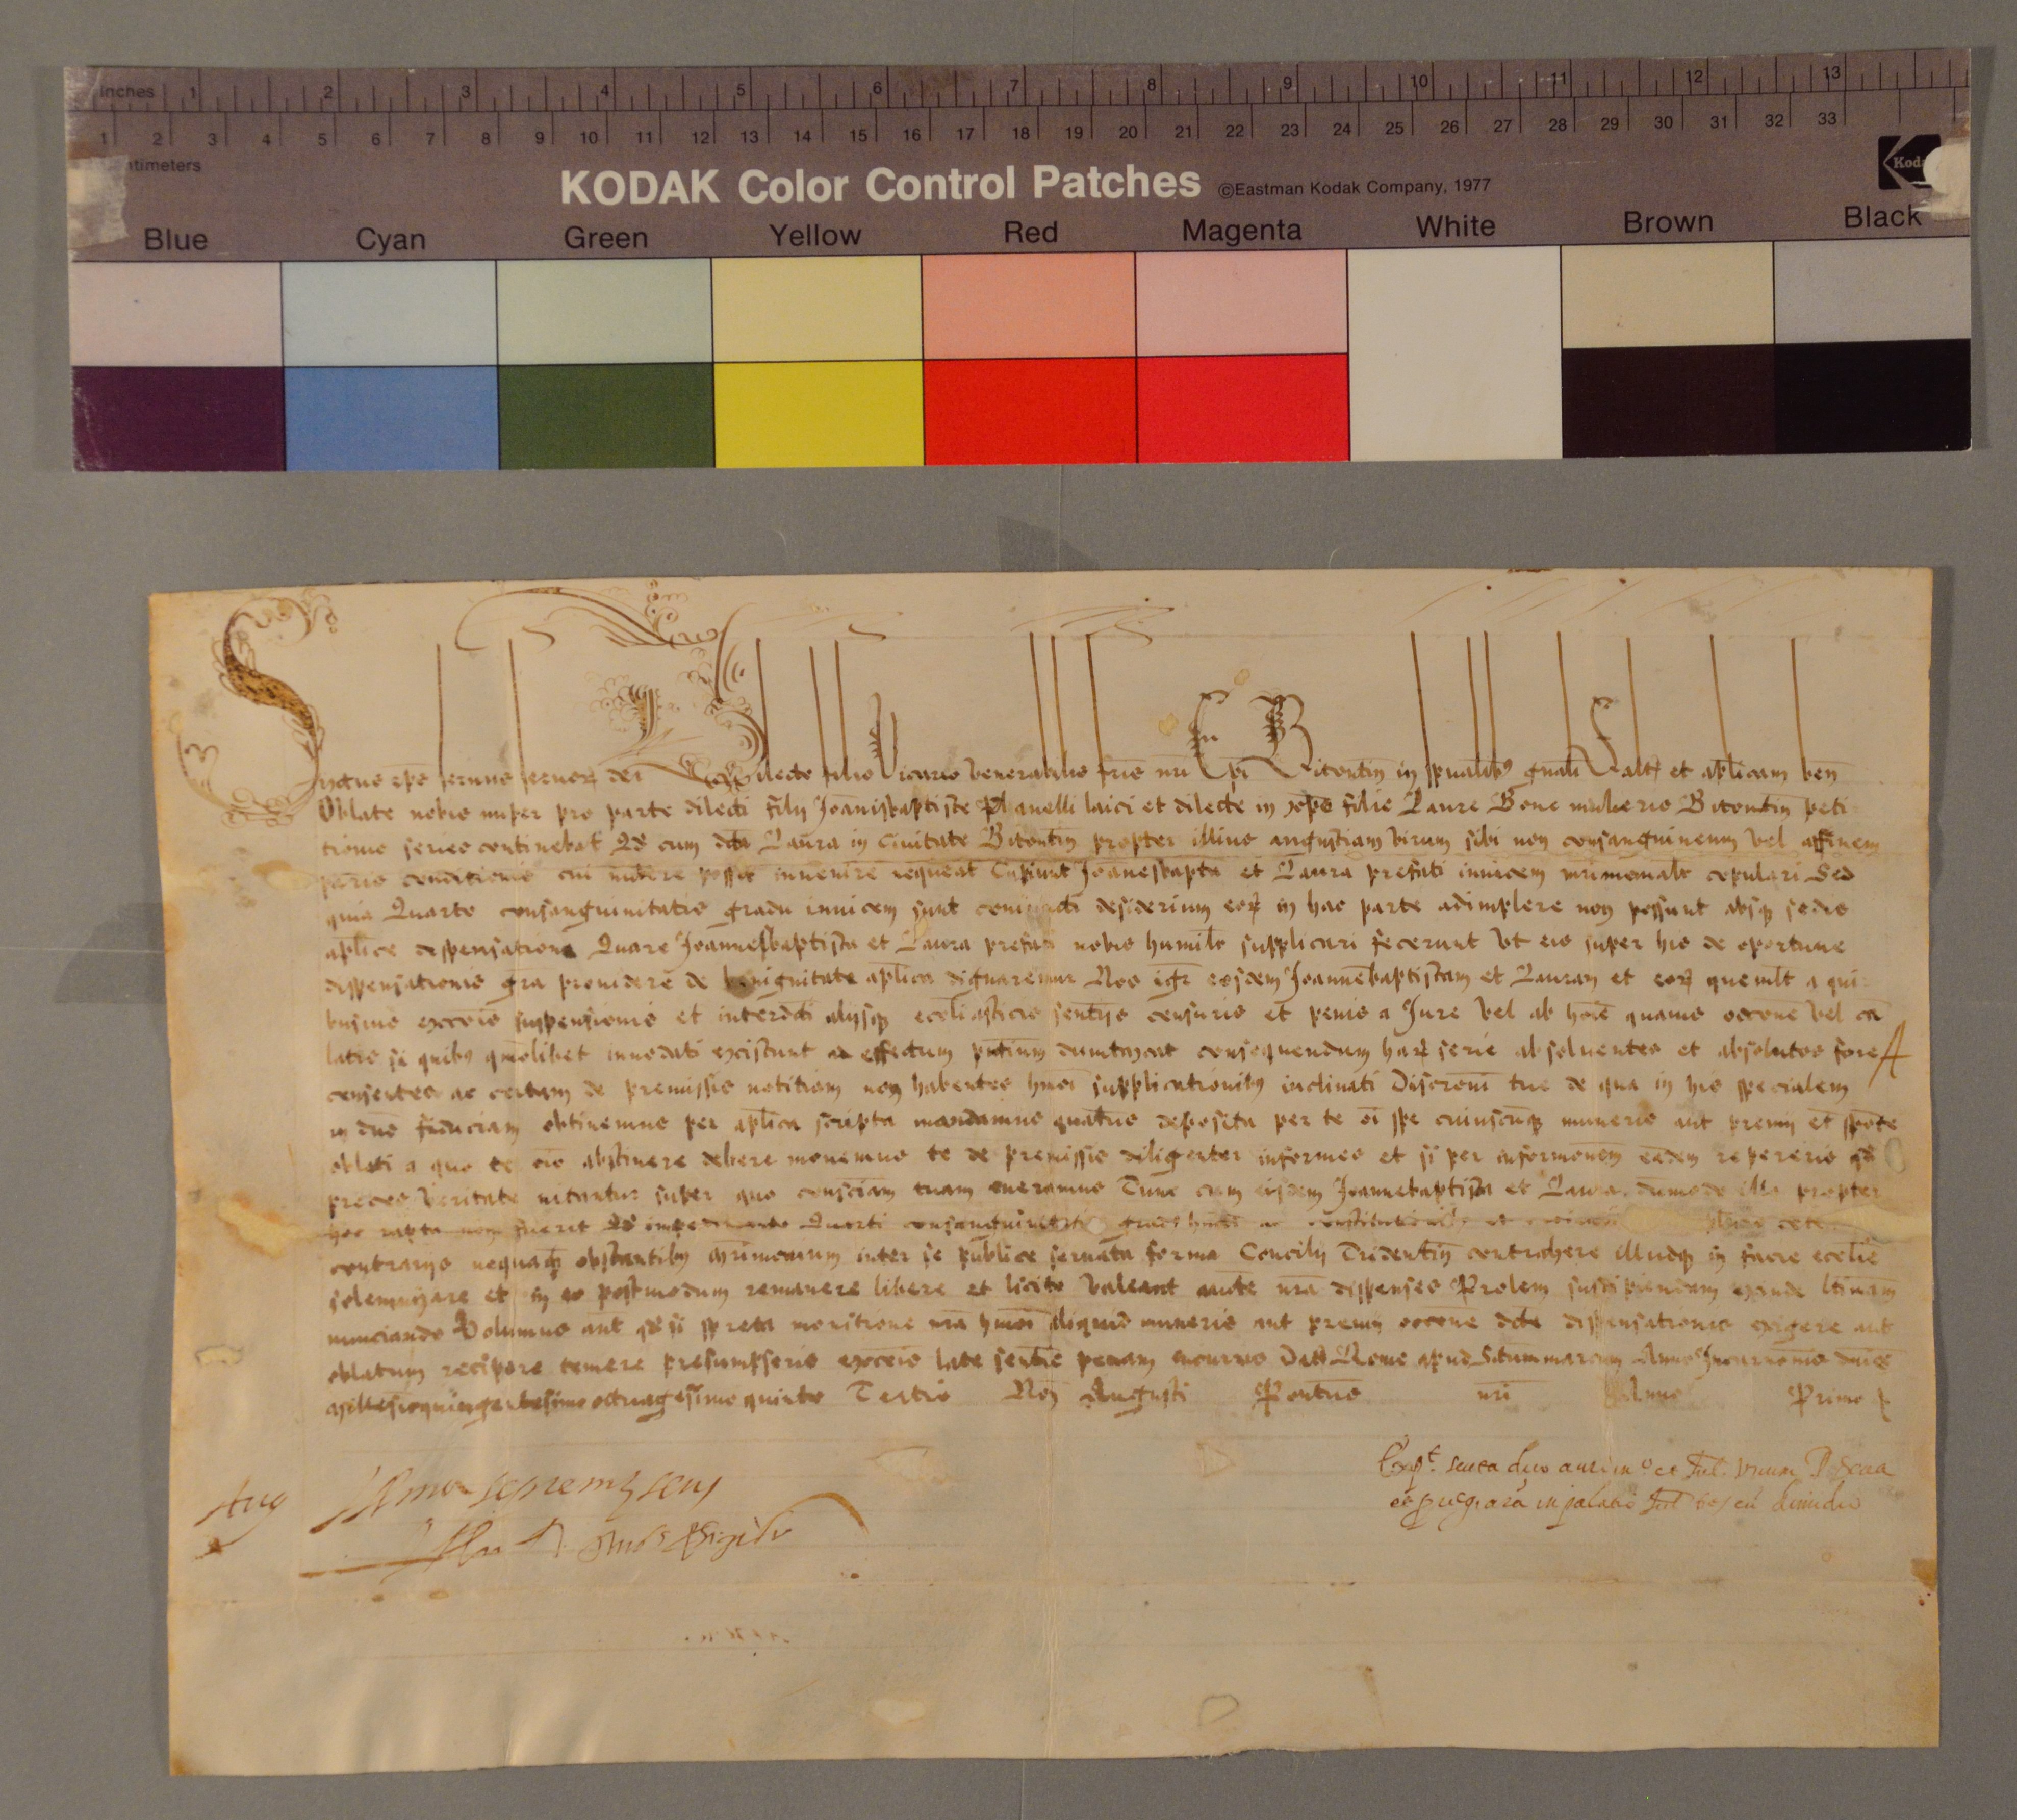 inches 1 2 3 4 5 6 7 8 9 10 11 12 13
1 2 3 4 5 6 7 8 9 10 11 12 13 14 15 16 17 18 19 20 21 22 23 24 25 26 27 28 29 30 31 32 33
ntimeters
KODAK Color Control Patches ©Eastman Kodak Company, 1977 Koda
Blue Cyan Green Yellow Red Magenta White Brown Black
Sixtus eps seruus seruoꝝ dei Dilecto filio Vicario Venerabilis fris nri Epi Bitontin in spualibꝰ gnali Saltm et aplicam ben
Oblate nobis nuper pro parte dilecti filij Joannisbaptiste Planelli laici et dilecte in xpo filie Laure Bone mulieris Bitontin peti
tionis series continebat Qd cum dcta Laura in Ciuitate Bitontin propter illius angustiam virum sibi non consanguineum vel affinem
paris conditionis cui nubere possit inuenire nequeat Cupiunt Joanesbapta et Laura prefati inuicem mrimonialr copulari Sed
quia Quarto consanguinitatis gradu inuicem sunt coniuncti desiderium eoꝝ in hac parte adimplere non possunt absqꝫ sedis
aplice dispensatione Quare Joannesbaptista et Laura prefati nobis humilr supplicari fecerunt vt eis super his de oportune
dispensationis gra prouidere de benignitate aplica dignaremur Nos igr eosdem Joannebaptistam et Lauram et eoꝝ quemlt a qui
busuis excois suspensionis et interdcti alijsqꝫ eccliasticis sentijs censuris et penis a Jure vel ab hoie quauis occone vel ca
latis si quibꝰ quolibet innodati existunt ad effectum pntium dumtaxat consequendum haꝝ serie absoluentes et absolutos fore A
censentes ac certam de premissis notitiam non habentes hmoi supplicationibꝰ inclinati Discroni tue de qua in his specialem
in dno fiduciam obtinemus per aplica scripta mandamus quatus deposita per te oi spe cuiuscunqꝫ muneris aut premij et sponte
oblati a quo te oio abstinere debere monemus te de premissis diligenter informes et si per informonem eadem repereris qd
preces veritate nitantur super quo consciam tuam oneramus Tunc cum eisdem Joannebaptista et Laura dumodo illa propter
hoc rapta non fuerit Qd impedimento Quarti consanguinitatis gradus hmoi ac constitutionibꝰ et
contrarijs nequaqꝫ obstantibꝰ mrimonium inter se publice seruata forma Concilij Tridentin contrahere illudqꝫ in facie ecclie
solemnizare et in eo postmodum remanere libere et licite valeant aucte nra dispenses Prolem suscipiendam exinde ltimam
nunciando Volumus aut qd si spreta monitione nra hmoi aliquid muneris aut premij occone dcte dispensationis exigere aut
oblatum recipere temere presumpseris excois late sentie penam incurras Datt Rome apud Sctummarcum Anno Incarnonis dnice
Millesimoquingentesimo octuagesimo quinto Tertio Non Augusti Pontus nri Anno Primo
Aug